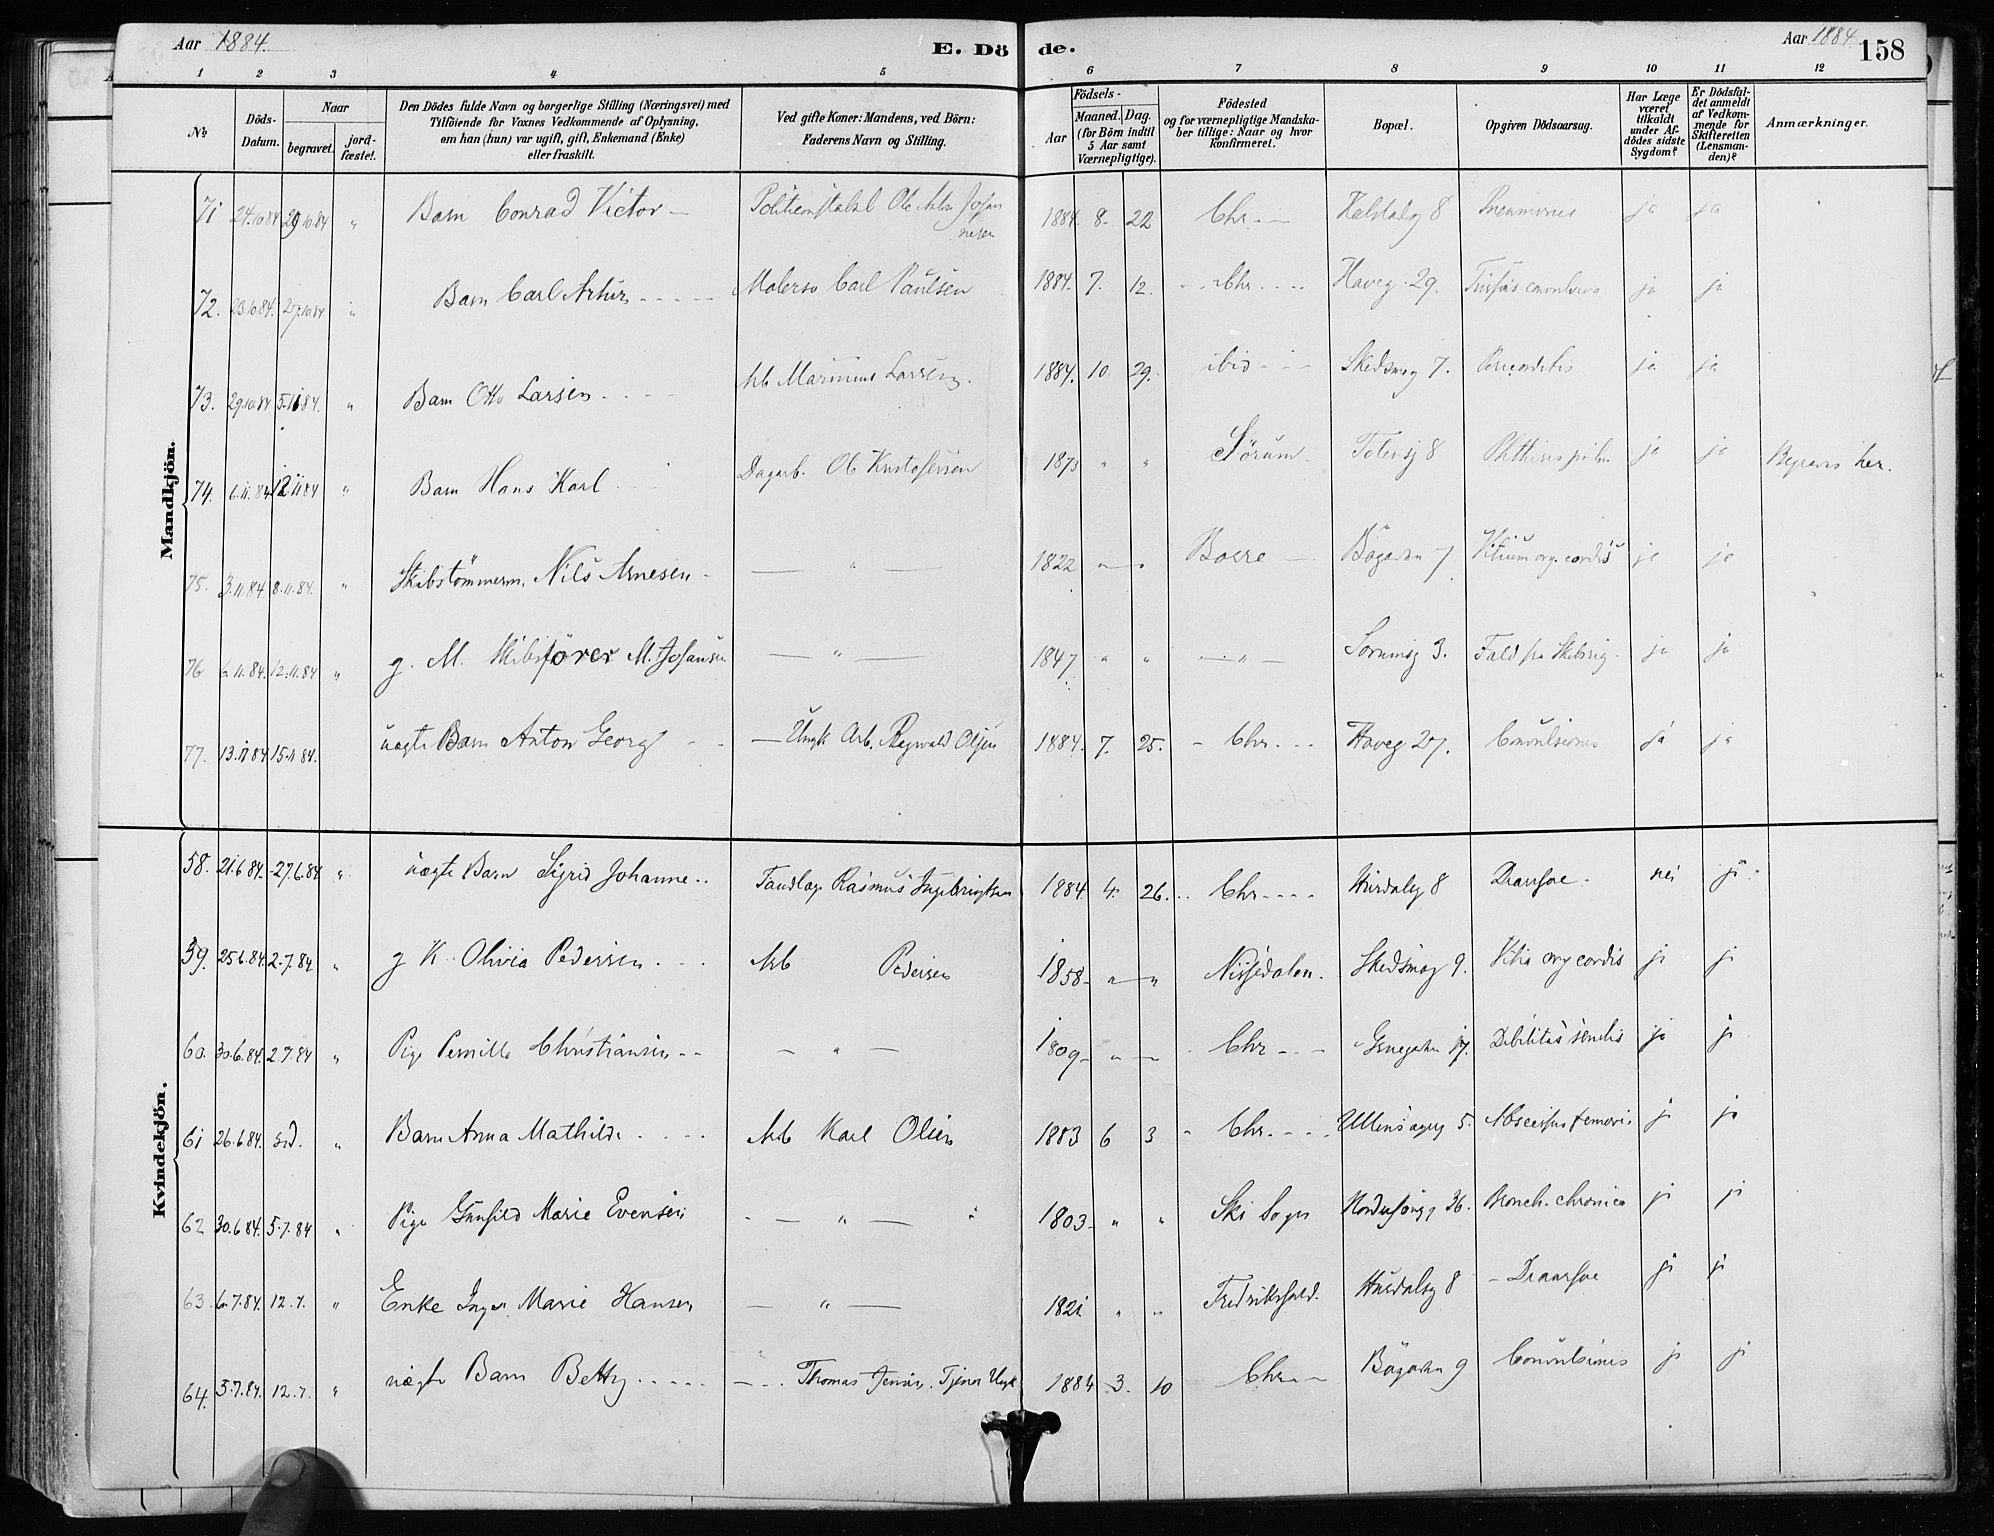 Aar 1884.
E. Dö de.
Aar 1884
158
1 2 3 4 5 6 7 8 9 10 11 12
No
Döds-Datum.
Naar
begravet.
jord-fæstet.
Den Dödes fulde Navn og borgerlige Stilling (Næringsvei) med
Tilföiende for Voxnes Vedkommende af Oplysning,
om han (hun) var ugift, gift, Enkemand (Enke)
eller fraskilt.
Ved gifte Koner: Mandens, ved Börn:
Faderens Navn og Stilling.
Födsels-
Aar
Maaned. Dag.
(for Börn indtil
5 Aar samt
Værnepligtige).
Födested
og for værnepligtige Mandska-
ber tillige: Naar og hvor
konfirmeret.
Bopæl.
Opgiven Dödsaarsag.
Har Læge
været
tilkaldt
under Af-
dödes sidste
Sygdom?
Er Dödsfal-
det anmeldt
af Vedkom-
mende for
Skifteretten
(Lensman-
den)?
Anmærkninger.
Mandkjön.
71 24.10.84 29.10.84 " Barn Conrad Victor – Ole Johan
nesen 1884. 8. 22 Chr. 8 ja ja
72. 23.10.84. 27.10.84 " Barn Carl Artur Carl Paulsen 1884. 7. 12. Chr. Haveg. 29. convulsiva ja ja
73. 29.10.84 5.11.84. " Barn Otto Larsen Arb Marinius Larsen. 1884. 10. 29. ibid Skedsmog 7. Pericarditis ja ja
74. 6.11.84 12.11.84 " Barn Hans Karl Dagarb. Ole Kristofersen 1873 " " Sörum. Totensg 8 Phthisis pulm ja ja Begraves her.
75. 3.11.84. 8.11.84. " Skibstömmerm. Nils Arnesen – " 1822 " " Borre Bögadn 7 Vitium org. cordis ja ja
76 6.11.84. 12.11.84 " g. M. Skibsförer M. Johansen " 1847 " " " Sörumsg 3. Fald fra Skibsrig. ja ja
77. 13.11.84 15.11.84. uægte Barn Anton Georg Ungk Arb. Ragnvald Olsen 1884. 7. 25. Chr. Haveg 27. Convulsiones ja ja
Kvindekjön.
58. 21.6.84. 27.6.84 " uægte Barn Sigrid Johanne Tandlæge Rasmus Ingebrigtsen 1884. 4. 26. Chr. Hurdalsg 8 Diarrhoe. nei ja
59. 25.6.84. 2.7.84 " g K. Olivia Pedersen Arb Pedersen 1858 " " Nissedalen. Skedsmog 9. Vitia org cordis ja ja
60. 30.6.84. 2.7.84 " Pige Pernille Christiansen " 1809 " Chr 17. Debilitas senilis ja ja
61 26.6.84. " Barn Anna Mathilde Arb Karl Olsen 1883 6 3 Chr. Ullensagerg 5. Abscessus femoris ja ja
62 30.6.84. 5.7.84 " Pige Gunhild Marie Evensen " 1803 " " Ski Sogn 36. Bronch. chronica ja ja
63. 6.7.84. 12.7. " Enke Inger Marie Hansen " 1821 " " Fredrikshald. Hurdalsg 8 Diarrhoe ja ja
64. 5.7.84. 12.7. " uægte Barn Betty Thomas Jensen. Tjener Ungk 1884 3. 10 Chr. Bögadn 9 Convulsiones ja ja